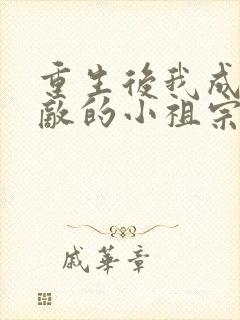 重生後我成
敵的小祖宗
戚華章